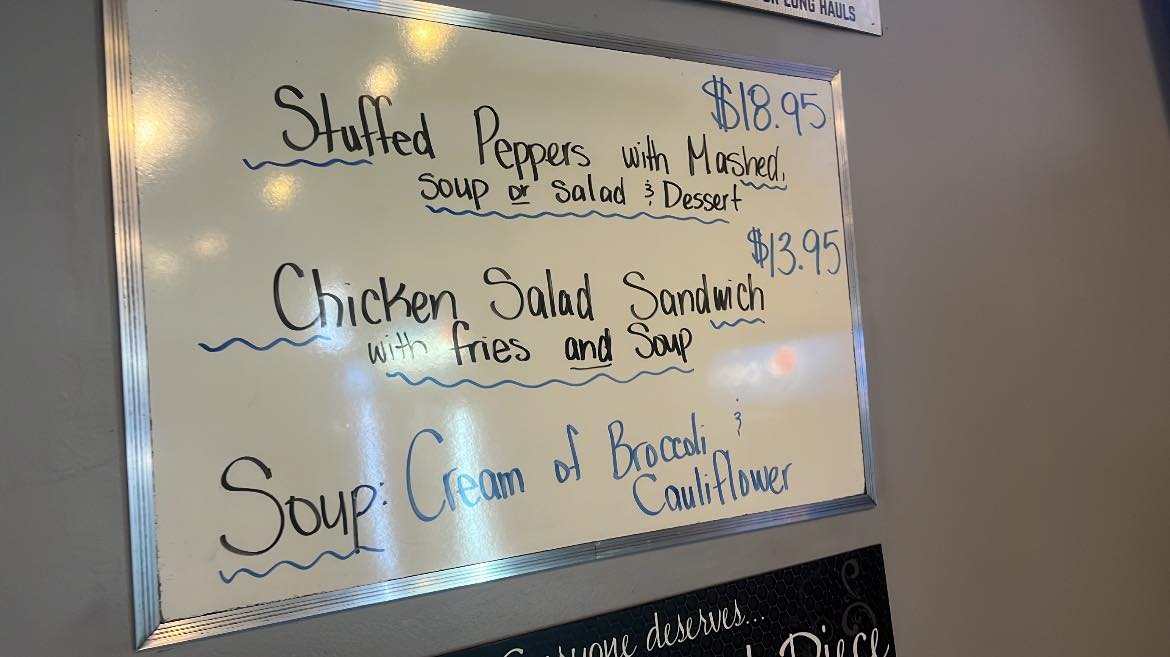 LONG HAULS
$18.95
Stuffed Peppers with Mashed,
soup or salad & Dessert
$13.95
Chicken Salad Sandwich
with fries and Soup
Soup: Cream of Broccoli &
Cauliflower
Everyone deserves...
Piece